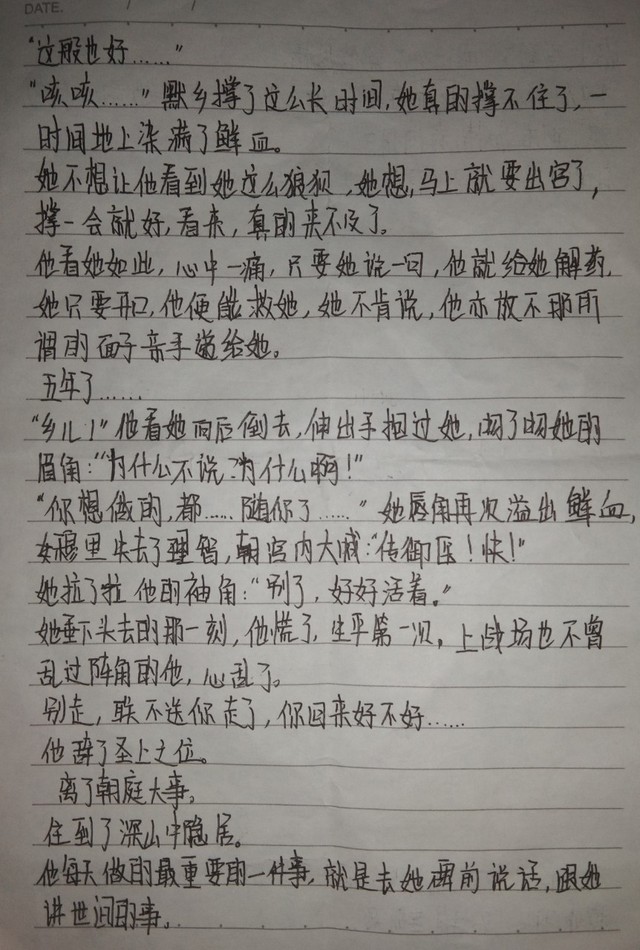 DATE. / /
“这般也好……”
“咳咳……”默乡撑了这么长时间,她真的撑不住了,一
时间地上染满了鲜血。
她不想让他看到她这么狼狈,她想,马上就要出宫了,
撑一会就好,看来,真的来不及了。
他看她如此,心中一痛,只要她说一句,他就给她解药,
她只要开口,他便能救她,她不肯说,他亦放不那所
谓的面子亲手端给她。
五年了……
“乡儿!”他看她向后倒去,伸出手抱过她,吻了吻她的
眉角:“为什么不说?为什么啊!”
“你想做的,都……随你了……”她唇角再次溢出鲜血,
穆里失去了理智,朝宫内大喊:“传御医!快!”
她拉了拉他的袖角:“别了,好好活着。”
她垂下头去的那一刻,他慌了,生平第一次,上战场也不曾
乱过阵角的他,心乱了。
别走,朕不送你走了,你回来好不好……
他辞了圣上之位。
离了朝庭大事,
住到了深山中隐居。
他每天做的最重要的一件事,就是去她碑前说话,跟她
讲世间的事。